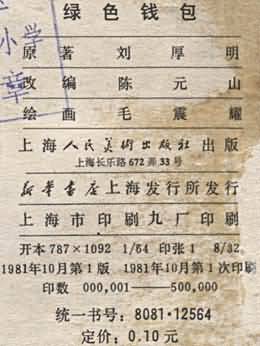 绿色钱包
小学
章
原著 刘厚明
改编 陈元山
绘画 毛震耀
上海人民美術出版社出版
上海长乐路672弄33号
新华書店上海发行所发行
上海市印刷九厂印刷
开本787×1092 1/64 印张1 8/32
1981年10月第1版 1981年10月第1次印刷
印数 000,001——500,000
统一书号：8081·12564
定价：0.10元